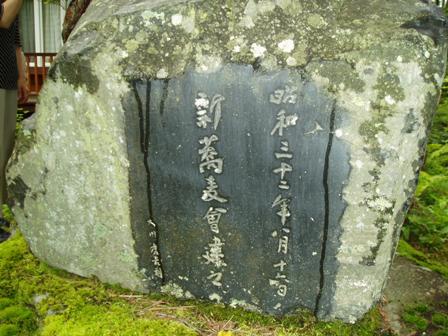 昭和三十二年八月十一日
新蕎麦會建之